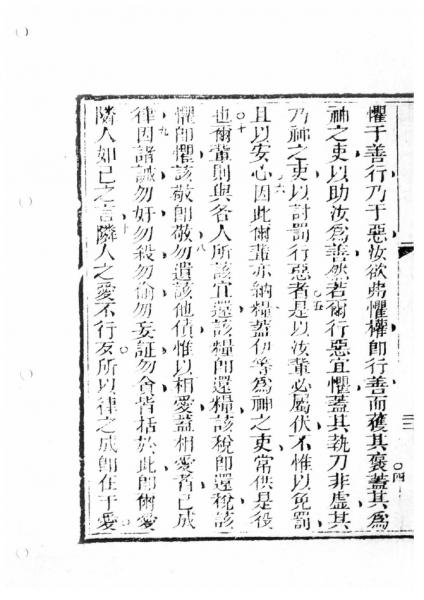 懼于善行乃于惡汝欲弗懼權即行善而獲其褒蓋其爲
四
神之吏以助汝爲善然若爾行惡宜懼蓋其執刀非虛其
乃神之吏以討罰行惡者是以汝輩必屬伏不惟以免罰
五
且以安心因此爾輩亦納糧蓋伊等爲神之吏常供是役
六
也爾輩則與各人所該宜還該糧即還糧該稅即還稅該
七
懼即懼該敬即敬勿遺該他債惟以相愛蓋相愛者已成
八
律因諸誡勿奸勿殺勿偷勿妄証勿貪皆括於此即爾愛
九
隣人如已之言隣人之愛不行歹所以律之成即在于愛
十